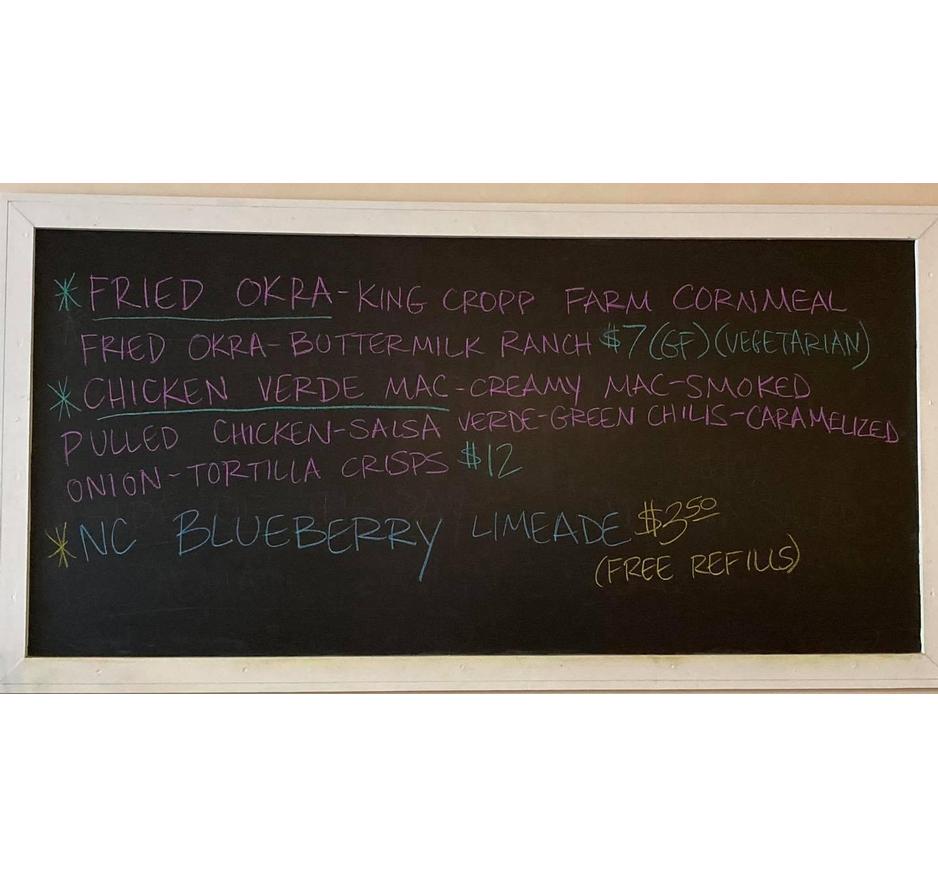 * FRIED OKRA-KING CROPP FARM CORNMEAL
FRIED OKRA-BUTTERMILK RANCH $7 (GF) (VEGETARIAN)
* CHICKEN VERDE MAC-CREAMY MAC-SMOKED
PULLED CHICKEN-SALSA VERDE-GREEN CHILIS-CARAMELIZED
ONION-TORTILLA CRISPS $12
* NC BLUEBERRY LIMEADE $3.50
(FREE REFILLS)